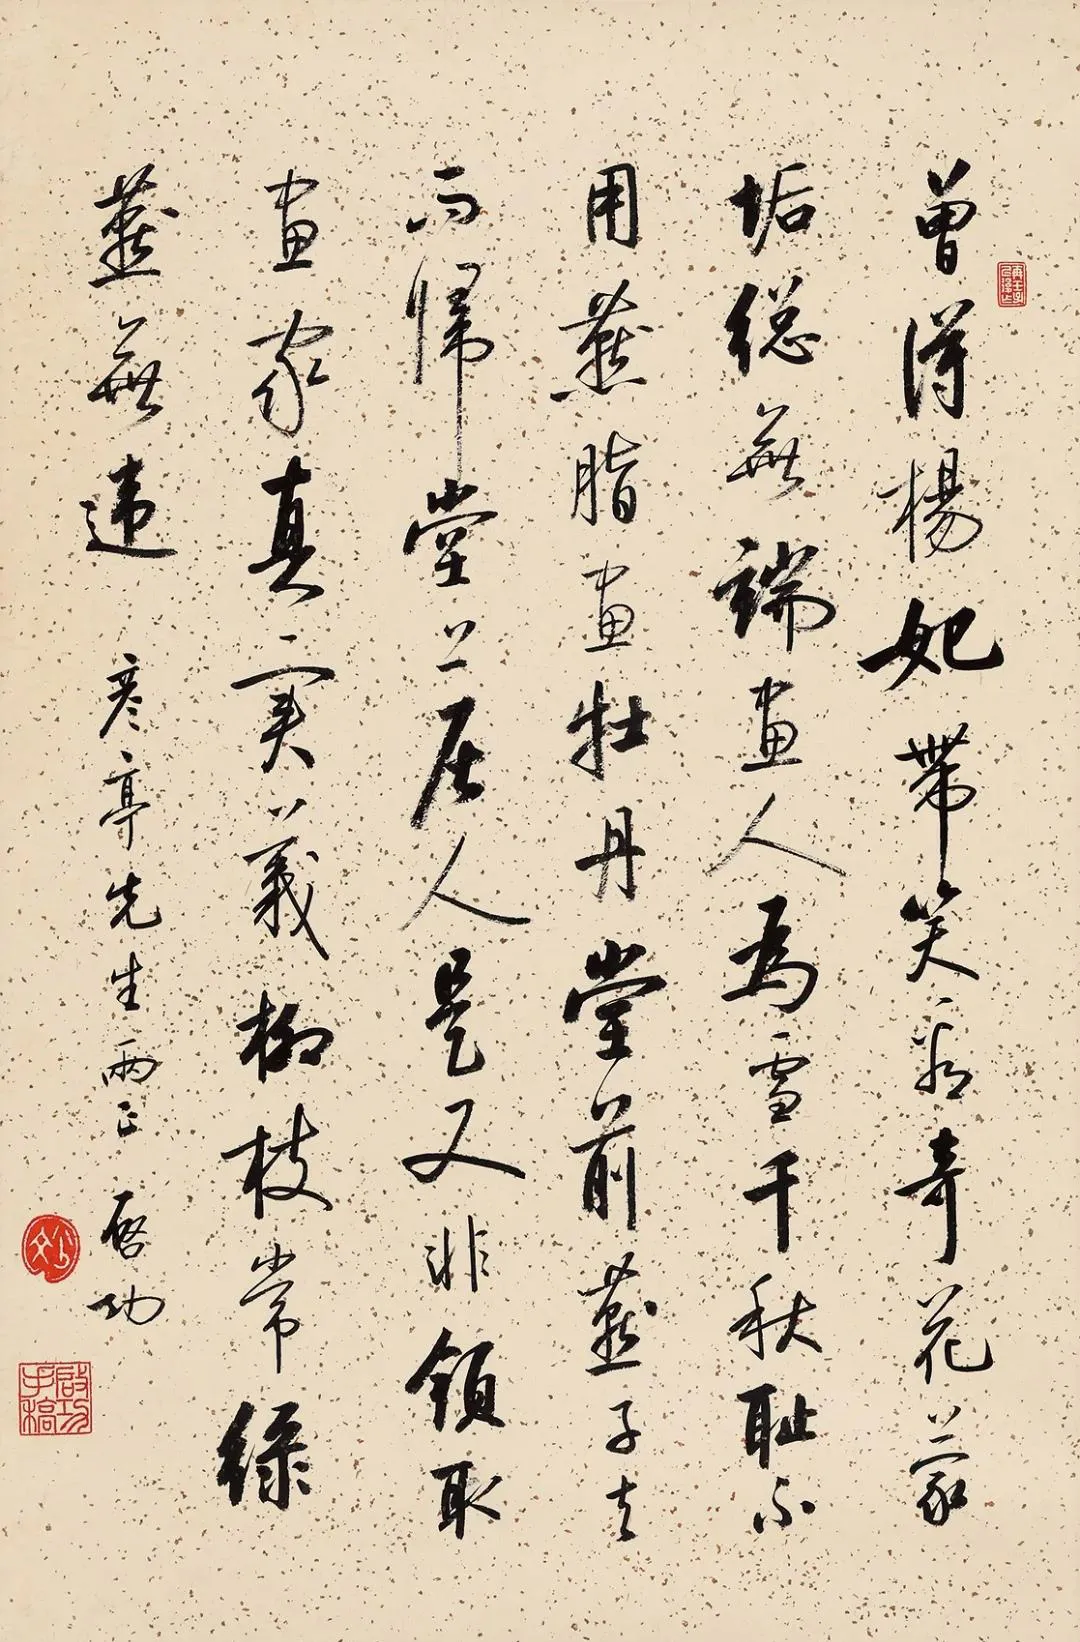 曾得楊妃帶笑看奇花蒙
垢緫無端畫人為雪千秋耻不
用燕脂畫牡丹堂前燕子去
而歸堂上居人是又非領取
畫家真实義柳枝常綠
燕無違 彦亭先生兩正 啓功
啟功手稿